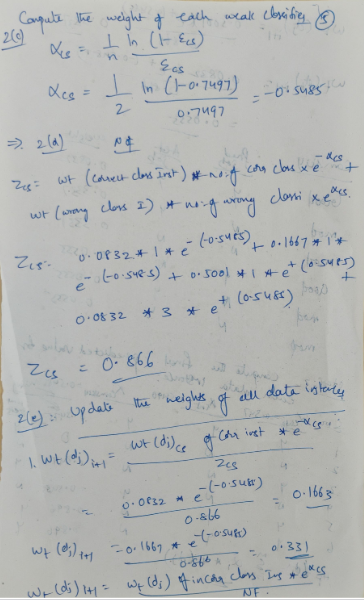 Compute the weight of each weak classifier (5)
2(c)
αcs = 1/n ln (1-εcs)/εcs
αcs = 1/2 ln (1-0.7497)/0.7497 = -0.5485
⇒ 2(d)
Zcs = wt (correct class Inst) * no. of corr class x e^-αcs +
wt (wrong class I) * no. of wrong classi x e^αcs.
Zcs = 0.0832 * 1 * e^-(-0.5485) + 0.1667 * 1 *
e^-(-0.5485) + 0.5001 * 1 * e^+(0.5485) +
0.0832 * 3 * e^+(0.5485)
Zcs = 0.866
2(e). Update the weights of all data instances
1. wt (dj)i+1 = wt (dj)cs of corr inst * e^-αcs / Zcs
= 0.0832 * e^-(-0.5485) / 0.866 = 0.1663
wt (dj)i+1 = 0.1667 * e^-(-0.5485) / 0.866 = 0.331
wt (dj)i+1 = wt (dj) of incorr class Ins * e^αcs / NF